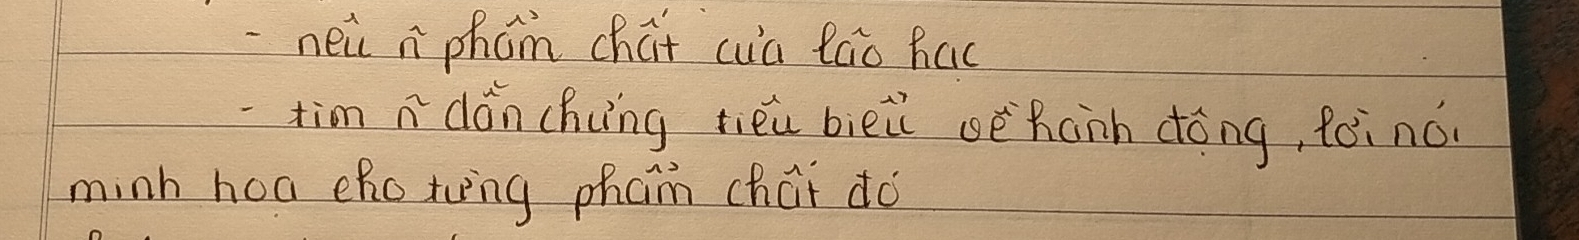 - nêu ~ phẩm chất của lão hạc
- tìm ~ dẫn chứng tiêu biểu về hành động, lời nói
minh hoa cho từng phẩm chất đó